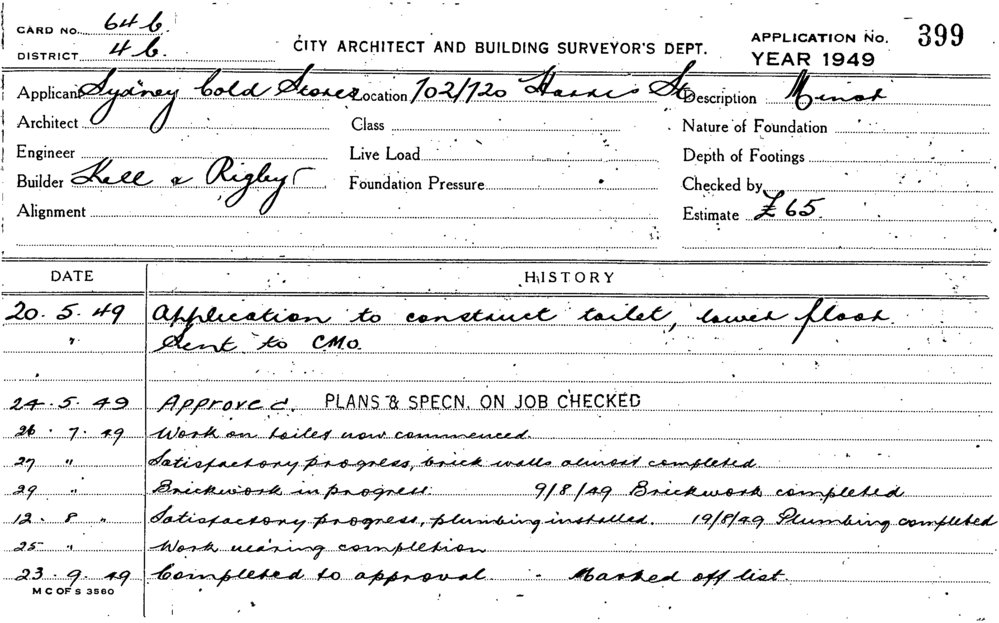 CARD NO. 64 b.
DISTRICT 4 b.
CITY ARCHITECT AND BUILDING SURVEYOR'S DEPT.
APPLICATION No. 399
YEAR 1949
Applicant Sydney Cold Stores Location 702/720 Harris St Description Minor
Architect Class Nature of Foundation
Engineer Live Load Depth of Footings
Builder Kell & Rigby Foundation Pressure Checked by
Alignment Estimate £65.
DATE HISTORY
20. 5. 49 Application to construct toilet, lower floor.
" Sent to C.M.O.
24. 5. 49 Approved. PLANS & SPECN. ON JOB CHECKED
26. 7. 49 Work on toilet now commenced.
27 " Satisfactory progress, brick walls almost completed.
29 " Brickwork in progress. 9/8/49 Brickwork completed
12. 8 " Satisfactory progress, plumbing installed. 19/8/49 Plumbing completed
25 " Work nearing completion
23. 9. 49 Completed to approval. - Marked off list.
M C OF S 3560